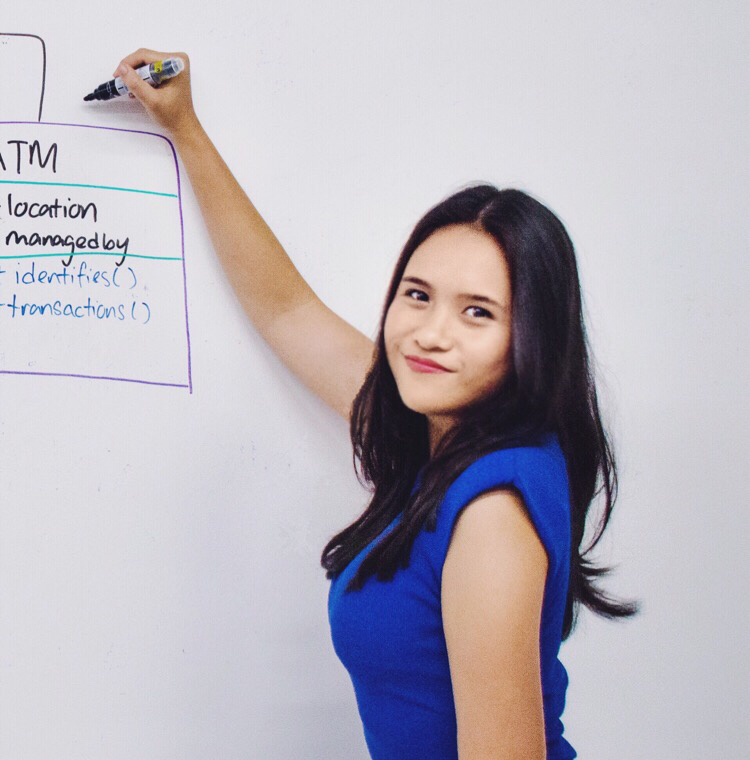 ATM
location
managedby
identifies()
transactions()